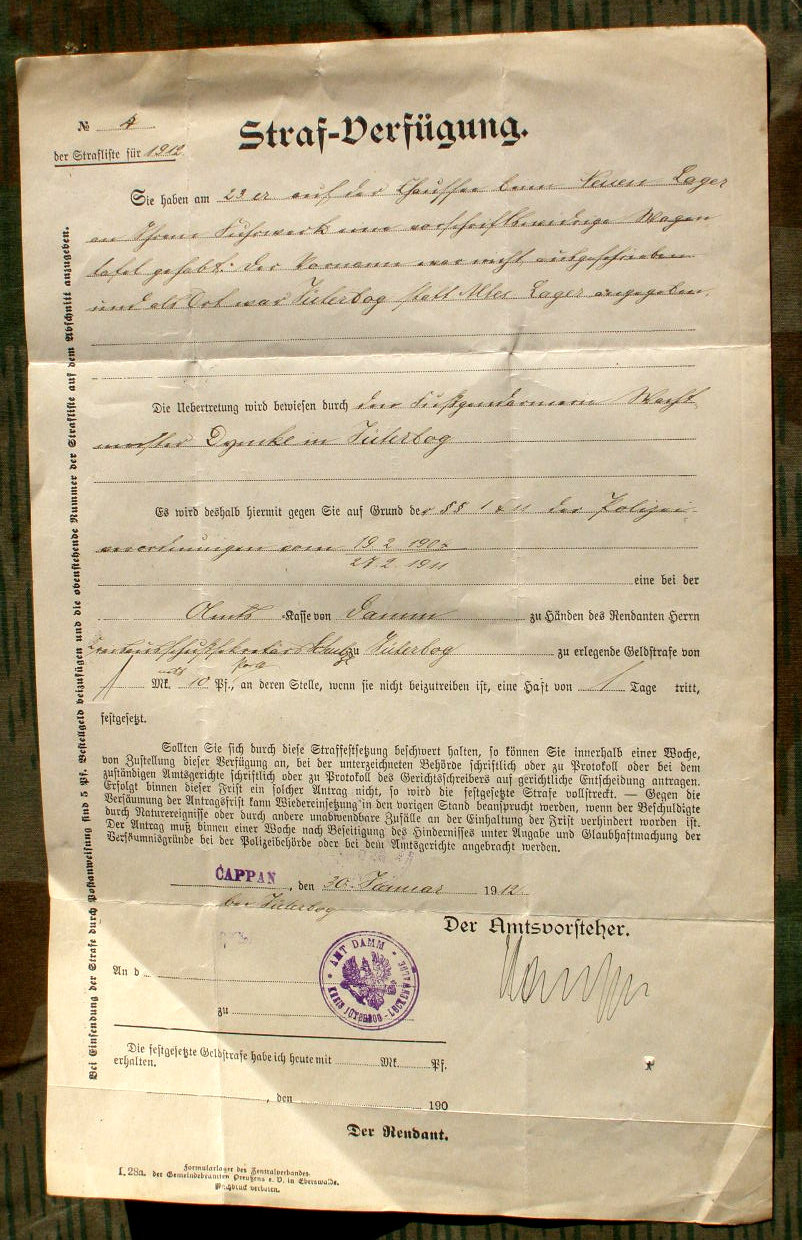 № 4
Straf-Verfügung.
der Strafliste für 1912
Sie haben am 23 er auf der Chaussee beim Neuen Lager
an Ihrem Fuhrwerk eine vorschriftswidrige Wagen
tafel gehabt. Der Vorname war nicht ausgeschrieben
und als Ort war Jüterbog statt Altes Lager angegeben.
Die Uebertretung wird bewiesen durch den Fußgendarmerie Wacht
meister Dymke in Jüterbog
Es wird deshalb hiermit gegen Sie auf Grund der §§ 1 & 11 der Polizei-
verordnungen vom 19.2.190
27.2.1911
eine bei der
Amts -Kasse von Damm zu Händen des Rendanten Herrn
Kreisausschußsekretär Schulz zu Jüterbog zu erlegende Geldstrafe von
1 Mk. 10 Pf., an deren Stelle, wenn sie nicht beizutreiben ist, eine Haft von 1 Tage tritt,
festgesetzt.
Sollten Sie sich durch diese Straffestsetzung beschwert halten, so können Sie innerhalb einer Woche,
von Zustellung dieser Verfügung an, bei der unterzeichneten Behörde schriftlich oder zu Protokoll oder bei dem
zuständigen Amtsgerichte schriftlich oder zu Protokoll des Gerichtsschreibers auf gerichtliche Entscheidung antragen.
Erfolgt binnen dieser Frist ein solcher Antrag nicht, so wird die festgesetzte Strafe vollstreckt. — Gegen die
Versäumung der Antragsfrist kann Wiedereinsetzung in den vorigen Stand beansprucht werden, wenn der Beschuldigte
durch Naturereignisse oder durch andere unabwendbare Zufälle an der Einhaltung der Frist verhindert worden ist.
Der Antrag muß binnen einer Woche nach Beseitigung des Hindernisses unter Angabe und Glaubhaftmachung der
Versäumnisgründe bei der Polizeibehörde oder bei dem Amtsgerichte angebracht werden.
CAPPAN, den 30. Januar 1912.
bei Jüterbog
Der Amtsvorsteher.
AMT DAMM
KREIS JÜTERBOG-LUCKENWALDE
An d
zu
Die festgesetzte Geldstrafe habe ich heute mit Mk. Pf.
erhalten.
, den 190
Der Rendant.
I. 28a. Formularlager des Zentralverbandes
der Gemeindebeamten Preußens e. V. in Eberswalde.
Nachdruck verboten.
Bei Einsendung der Strafe durch Postanweisung sind 5 Pf. Bestellgeld beizufügen und die obenstehende Nummer der Strafliste auf dem Abschnitt anzugeben.